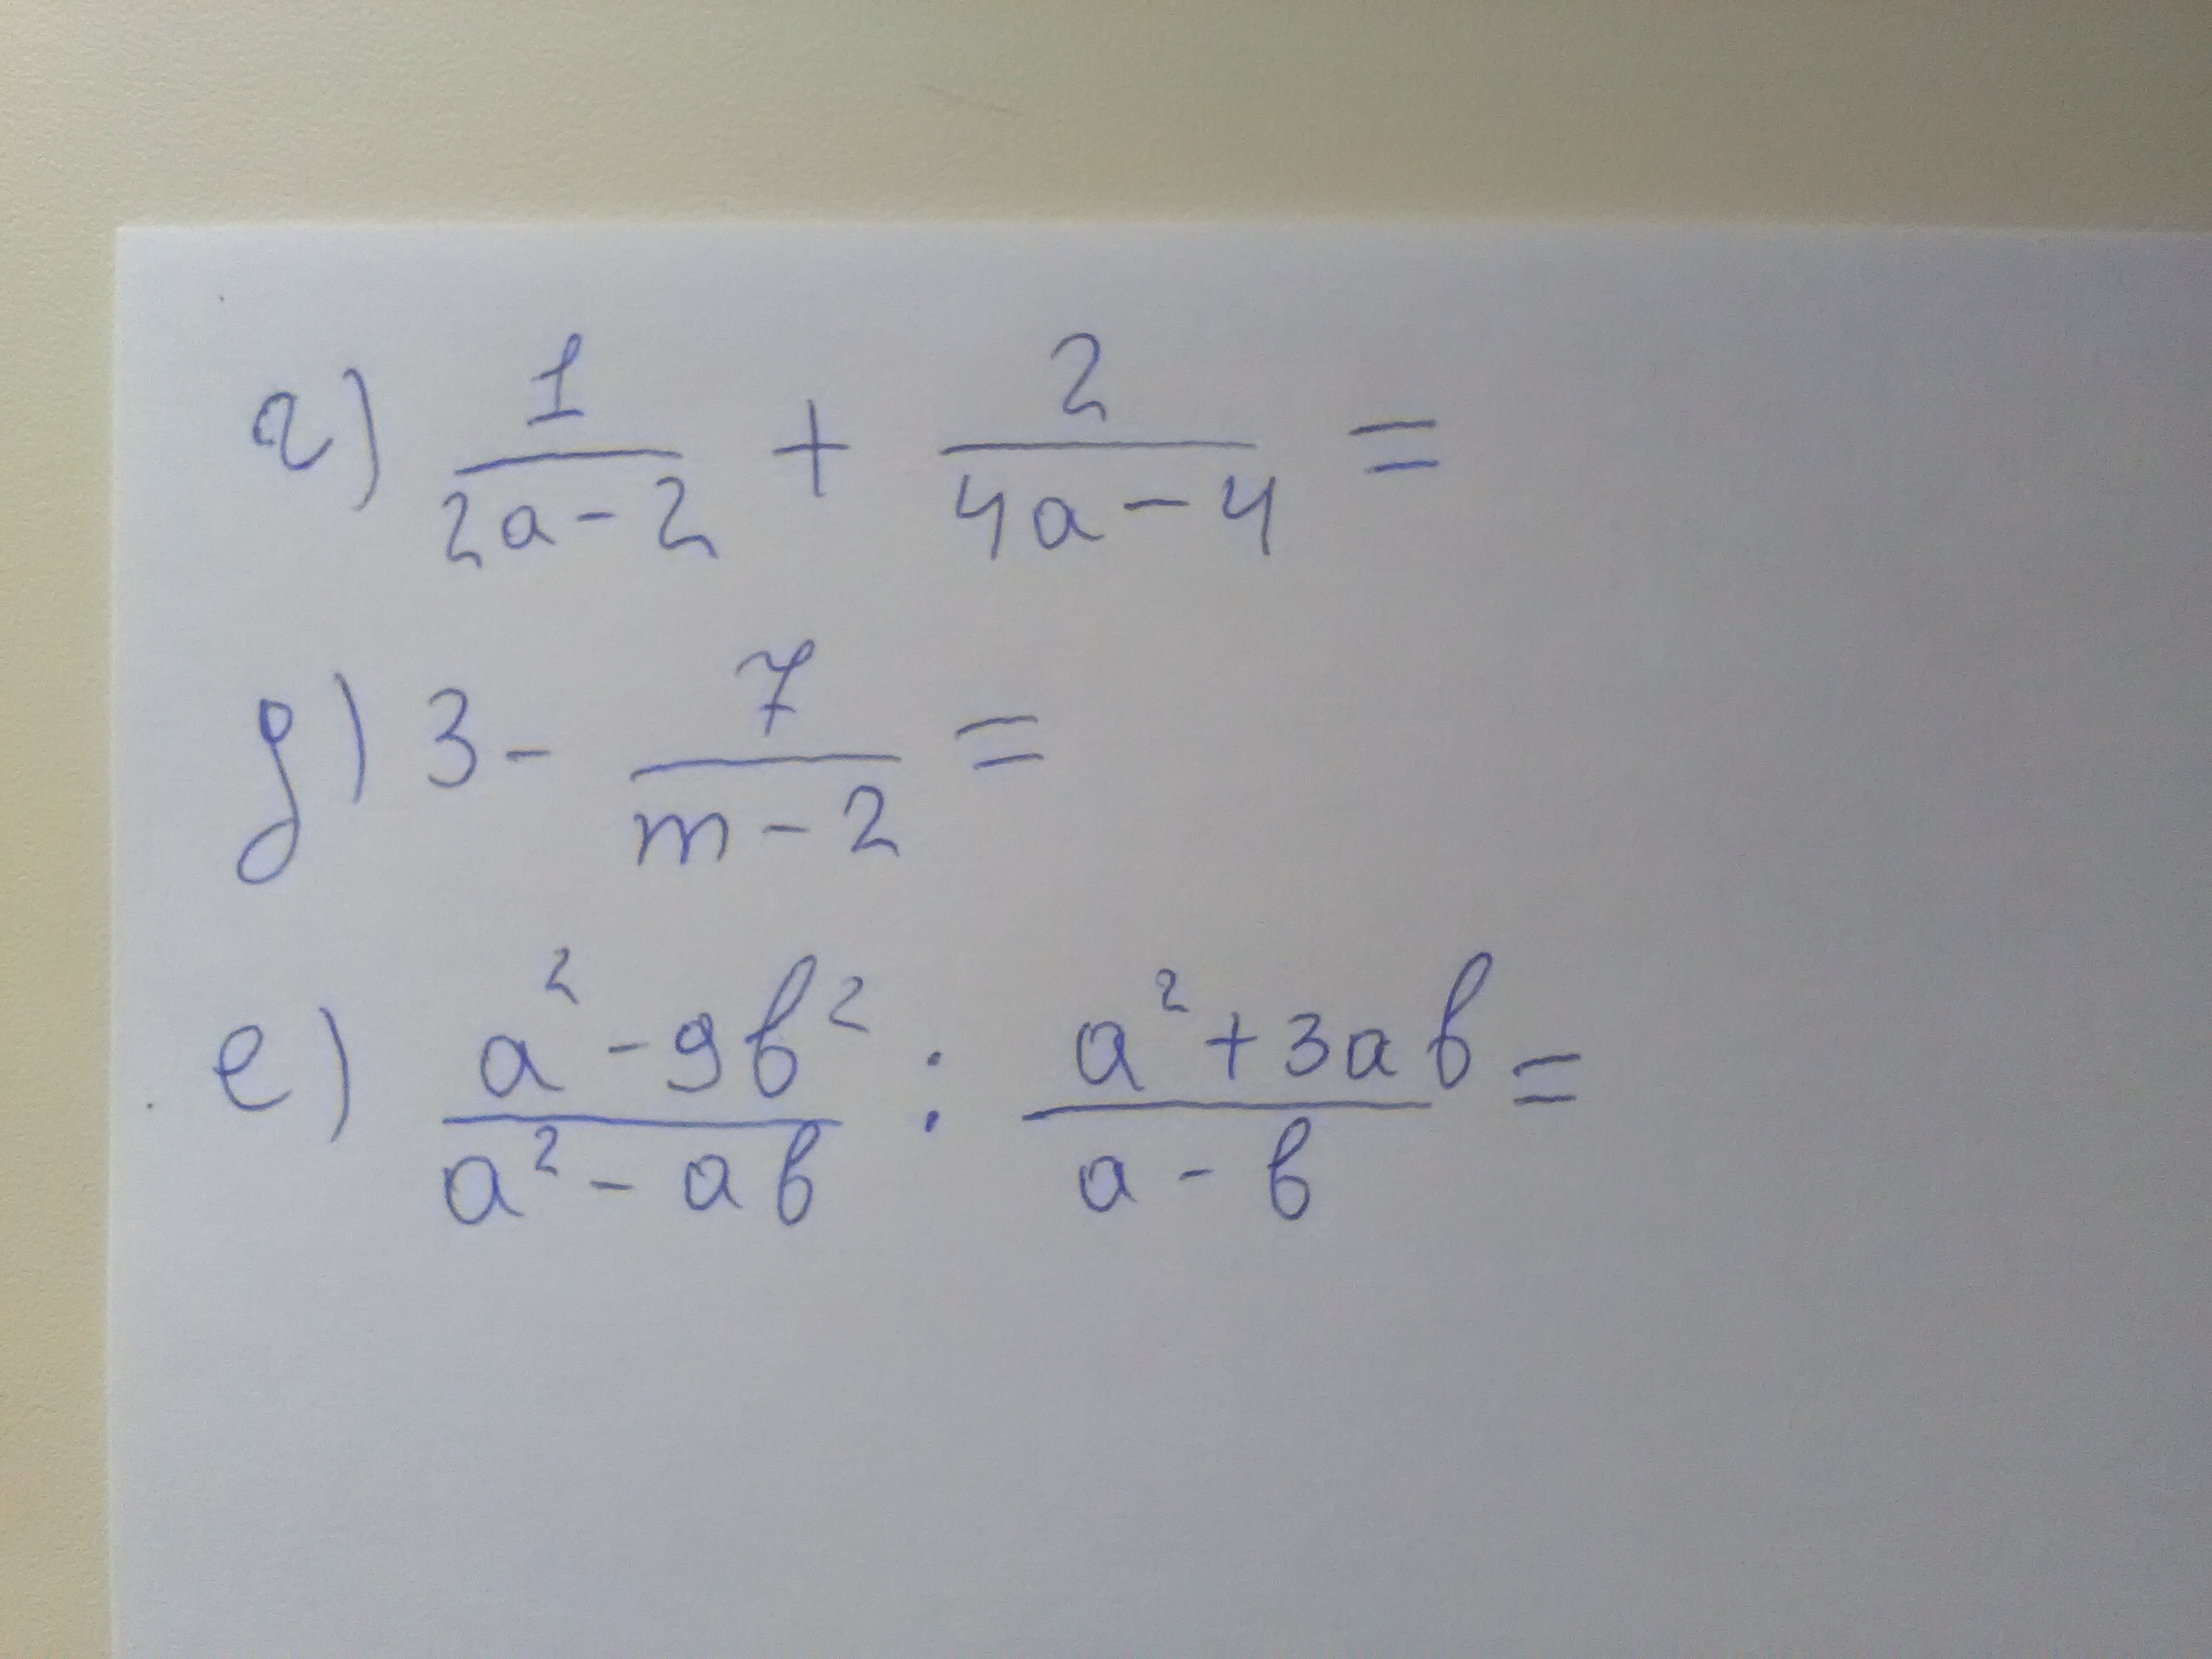 г) 1/(2a-2) + 2/(4a-4) =
д) 3 - 7/(m-2) =
е) (a²-9b²)/(a²-ab) : (a²+3ab)/(a-b) =